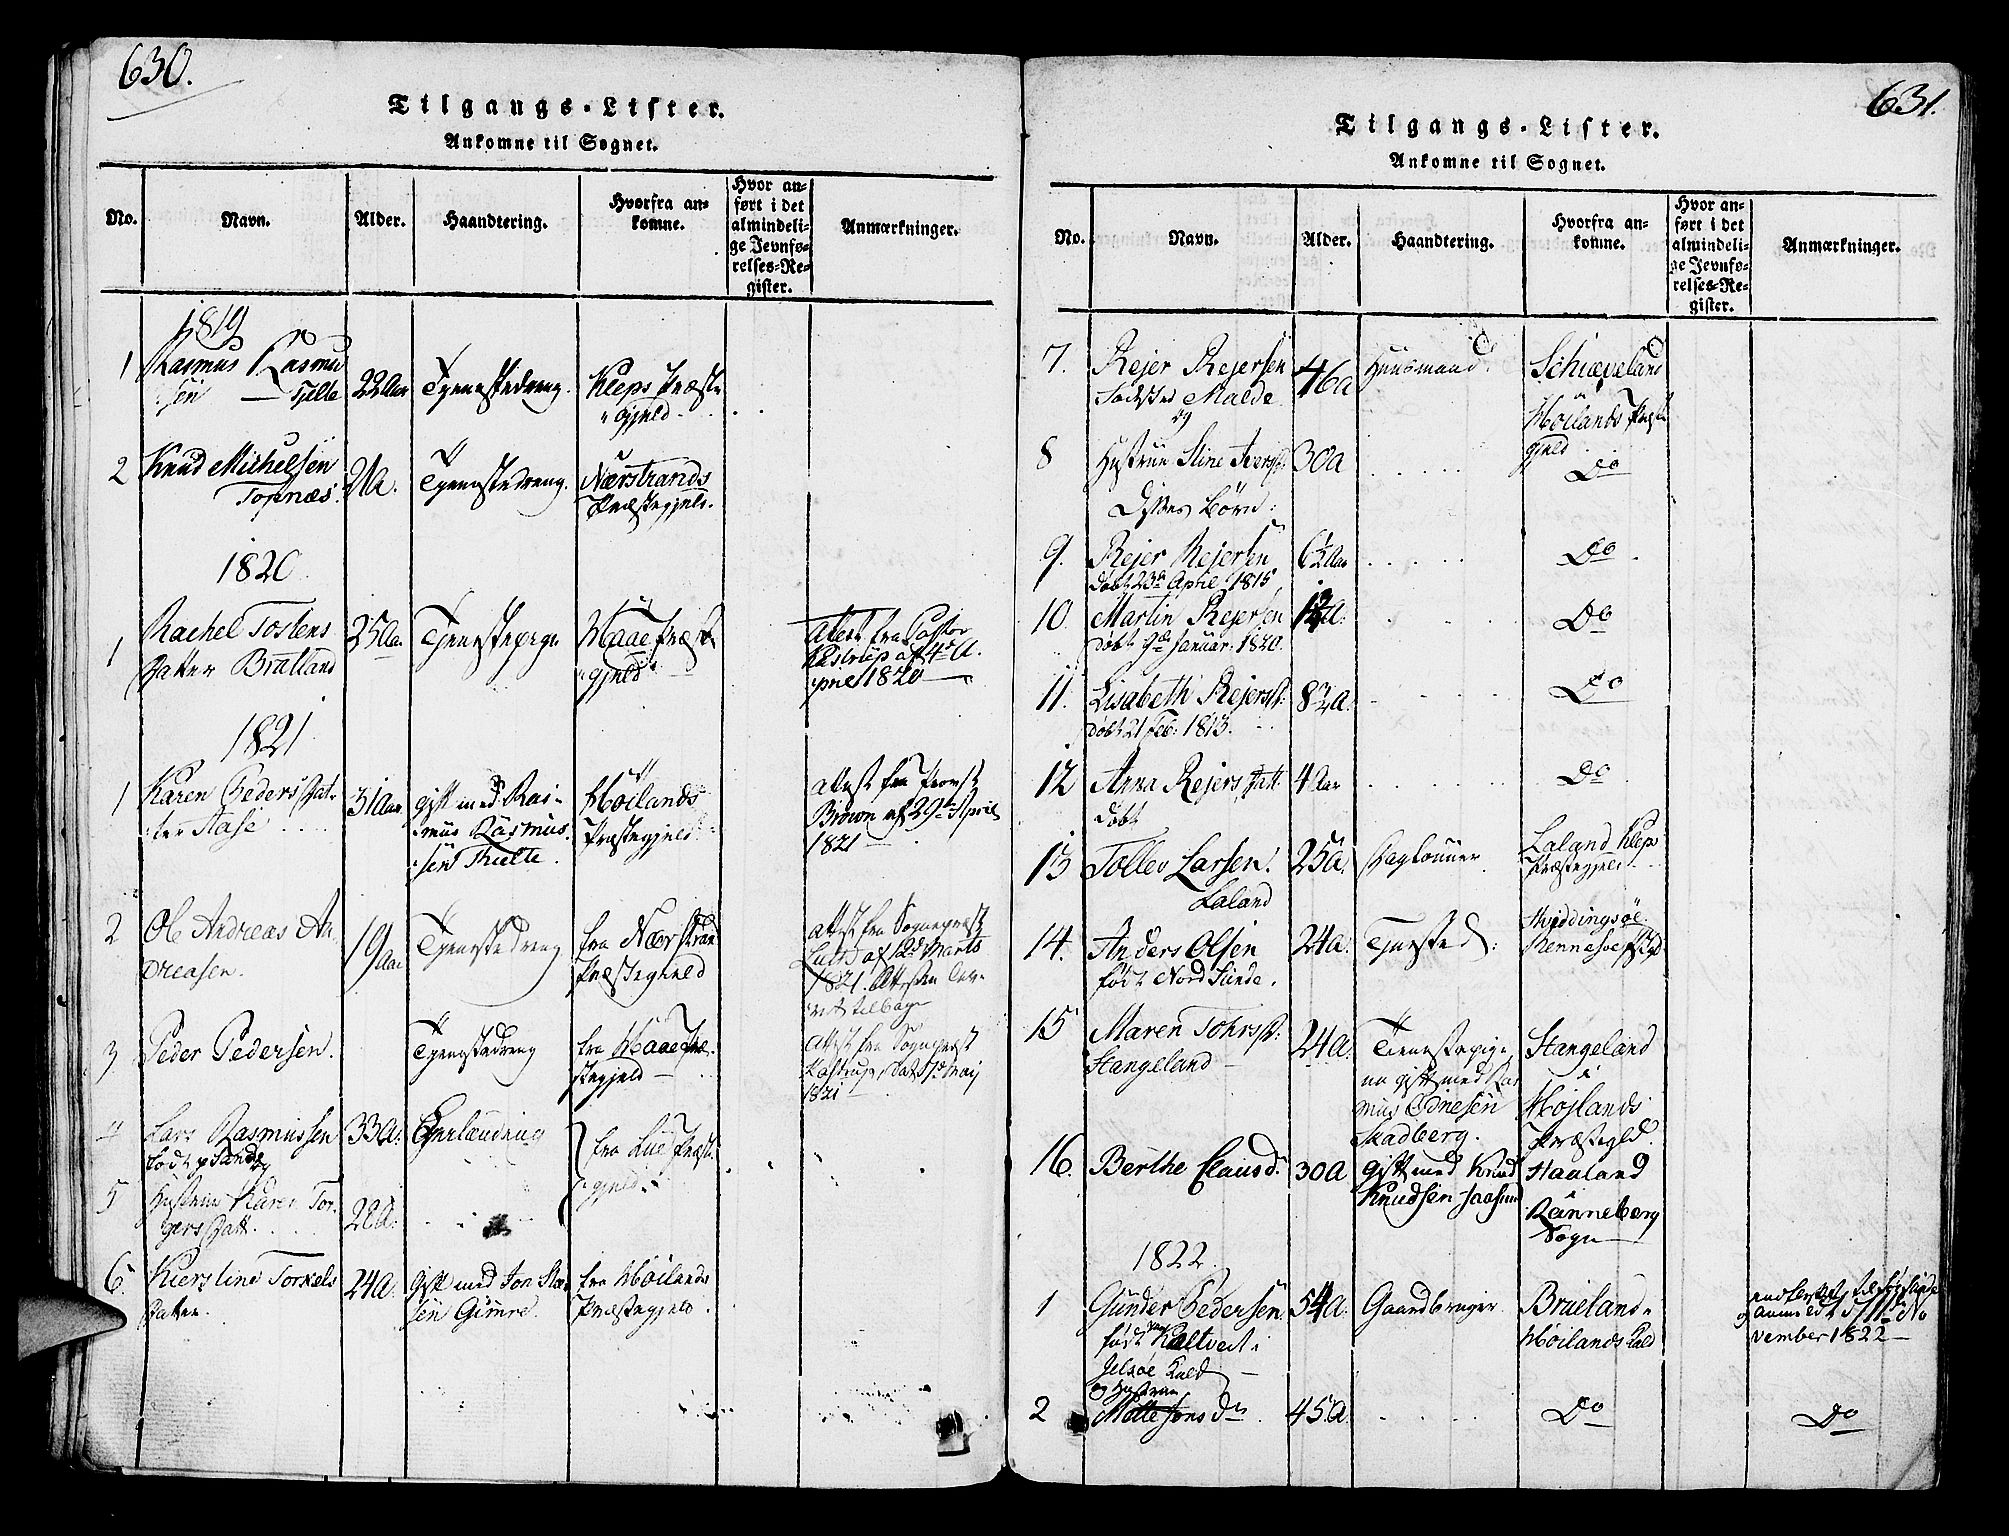 630.
Tilgangs-Lister.
Ankomne til Sognet.
No.
Navn.
Alder.
Haandtering.
Hvorfra an-
komne.
Hvor an-
ført i det
almindeli-
ge Jevnfø-
relses-Re-
gister.
Anmærkninger.
1819
1
Rasmus Rasmu
sen
22 Aar
Tjenestedreng.
Kleps Præste
gjeld
2
Knud Michelsen
Topnæs.
21 a.
Tjenestedreng.
Nærstrands
Præstegjeld.
1820
1
Rachel Tostens
Datter Bratland
25 Aa.
Tjenestepige
Haae Præste
gjeld
Attest fra Pastor
Kastrup af 4de A
pril 1820
1821
1
Karen Peders Dat-
ter Aase
31 Aar
gift med Ras-
mus Rasmus
sen
Höilands
Præstegjeld
Attest fra Provst
Brown af 29de April
1821
2
Ole Andreas An
dreasen.
19 Aar
Tjenestedreng
fra Nærstrand
Præstegjeld
Attest fra Sognepræst
af 12de Marts
1821. Attesten lev-
ret tilbage
3
Peder Pedersen.
Tjenestedreng
fra Haae Præ
stegjeld
Attest fra Sognepræst
Kastrup, dat 1de Maij
1821
4
Lars Rasmussen
født p
33 a.
fra Lye Præste
gjeld.
5
Hustrue Karen Tor
gers Datt.
28 a.
6
Kierstine Torkels
Datter.
24 a.
Gift med Jon
sen Gimre.
fra Höilands
Præstegjeld.
631.
Tilgangs-Lister.
Ankomne til Sognet.
No.
Navn.
Alder.
Haandtering.
Hvorfra an-
komne.
Hvor an-
ført i det
almindeli-
ge Jevnfø-
relses-Re-
gister.
Anmærkninger.
7.
Rejer Rejersen
Malde
og
46 a
Huusmand
Schiæveland
i
Höilands Præste
gjeld
8
Hustrue Stine Iversd:
30 a
Do
Disses Börn:
9.
Rejer Rejersen
døbt 23de April 1815
6½ Aar
Do
10.
Martin Rejersen
døbt 9de Januar: 1820.
Do
11.
Lisabeth Rejersd:
døbt 21 Feb: 1813.
8½ a.
Do
12
Anna Rejers Datt
døbt
4 Aar
Do
13
Tollev Larsen.
Laland
25 a.
Daglönner
Laland Kleps
Præstegjeld
14.
Anders Olsen
født Nord Sunde.
24 a.
Tjenested:
Hviddingsøe
15
Maren Tohrsd:
Stangeland
24 a.
Tienestepige
nu gift med Ras
mus Ednesen
Skadberg.
Stangeland
i
Höjlands
Præstegld.
16.
Berthe Clausd.
30 a
gift med Knud
Knudsen
Haaland
i
Ranneberg
Sogn
1822.
1
Gunder Pedersen
født paa Kaltveit i
Jelsøe Kald
54 a.
Gaardbruger
Brueland
Höilands Kald
anmeldt d 11te No
vember 1822
og Hustrue
2
Mette Jons dr
45 a.
Do
Do